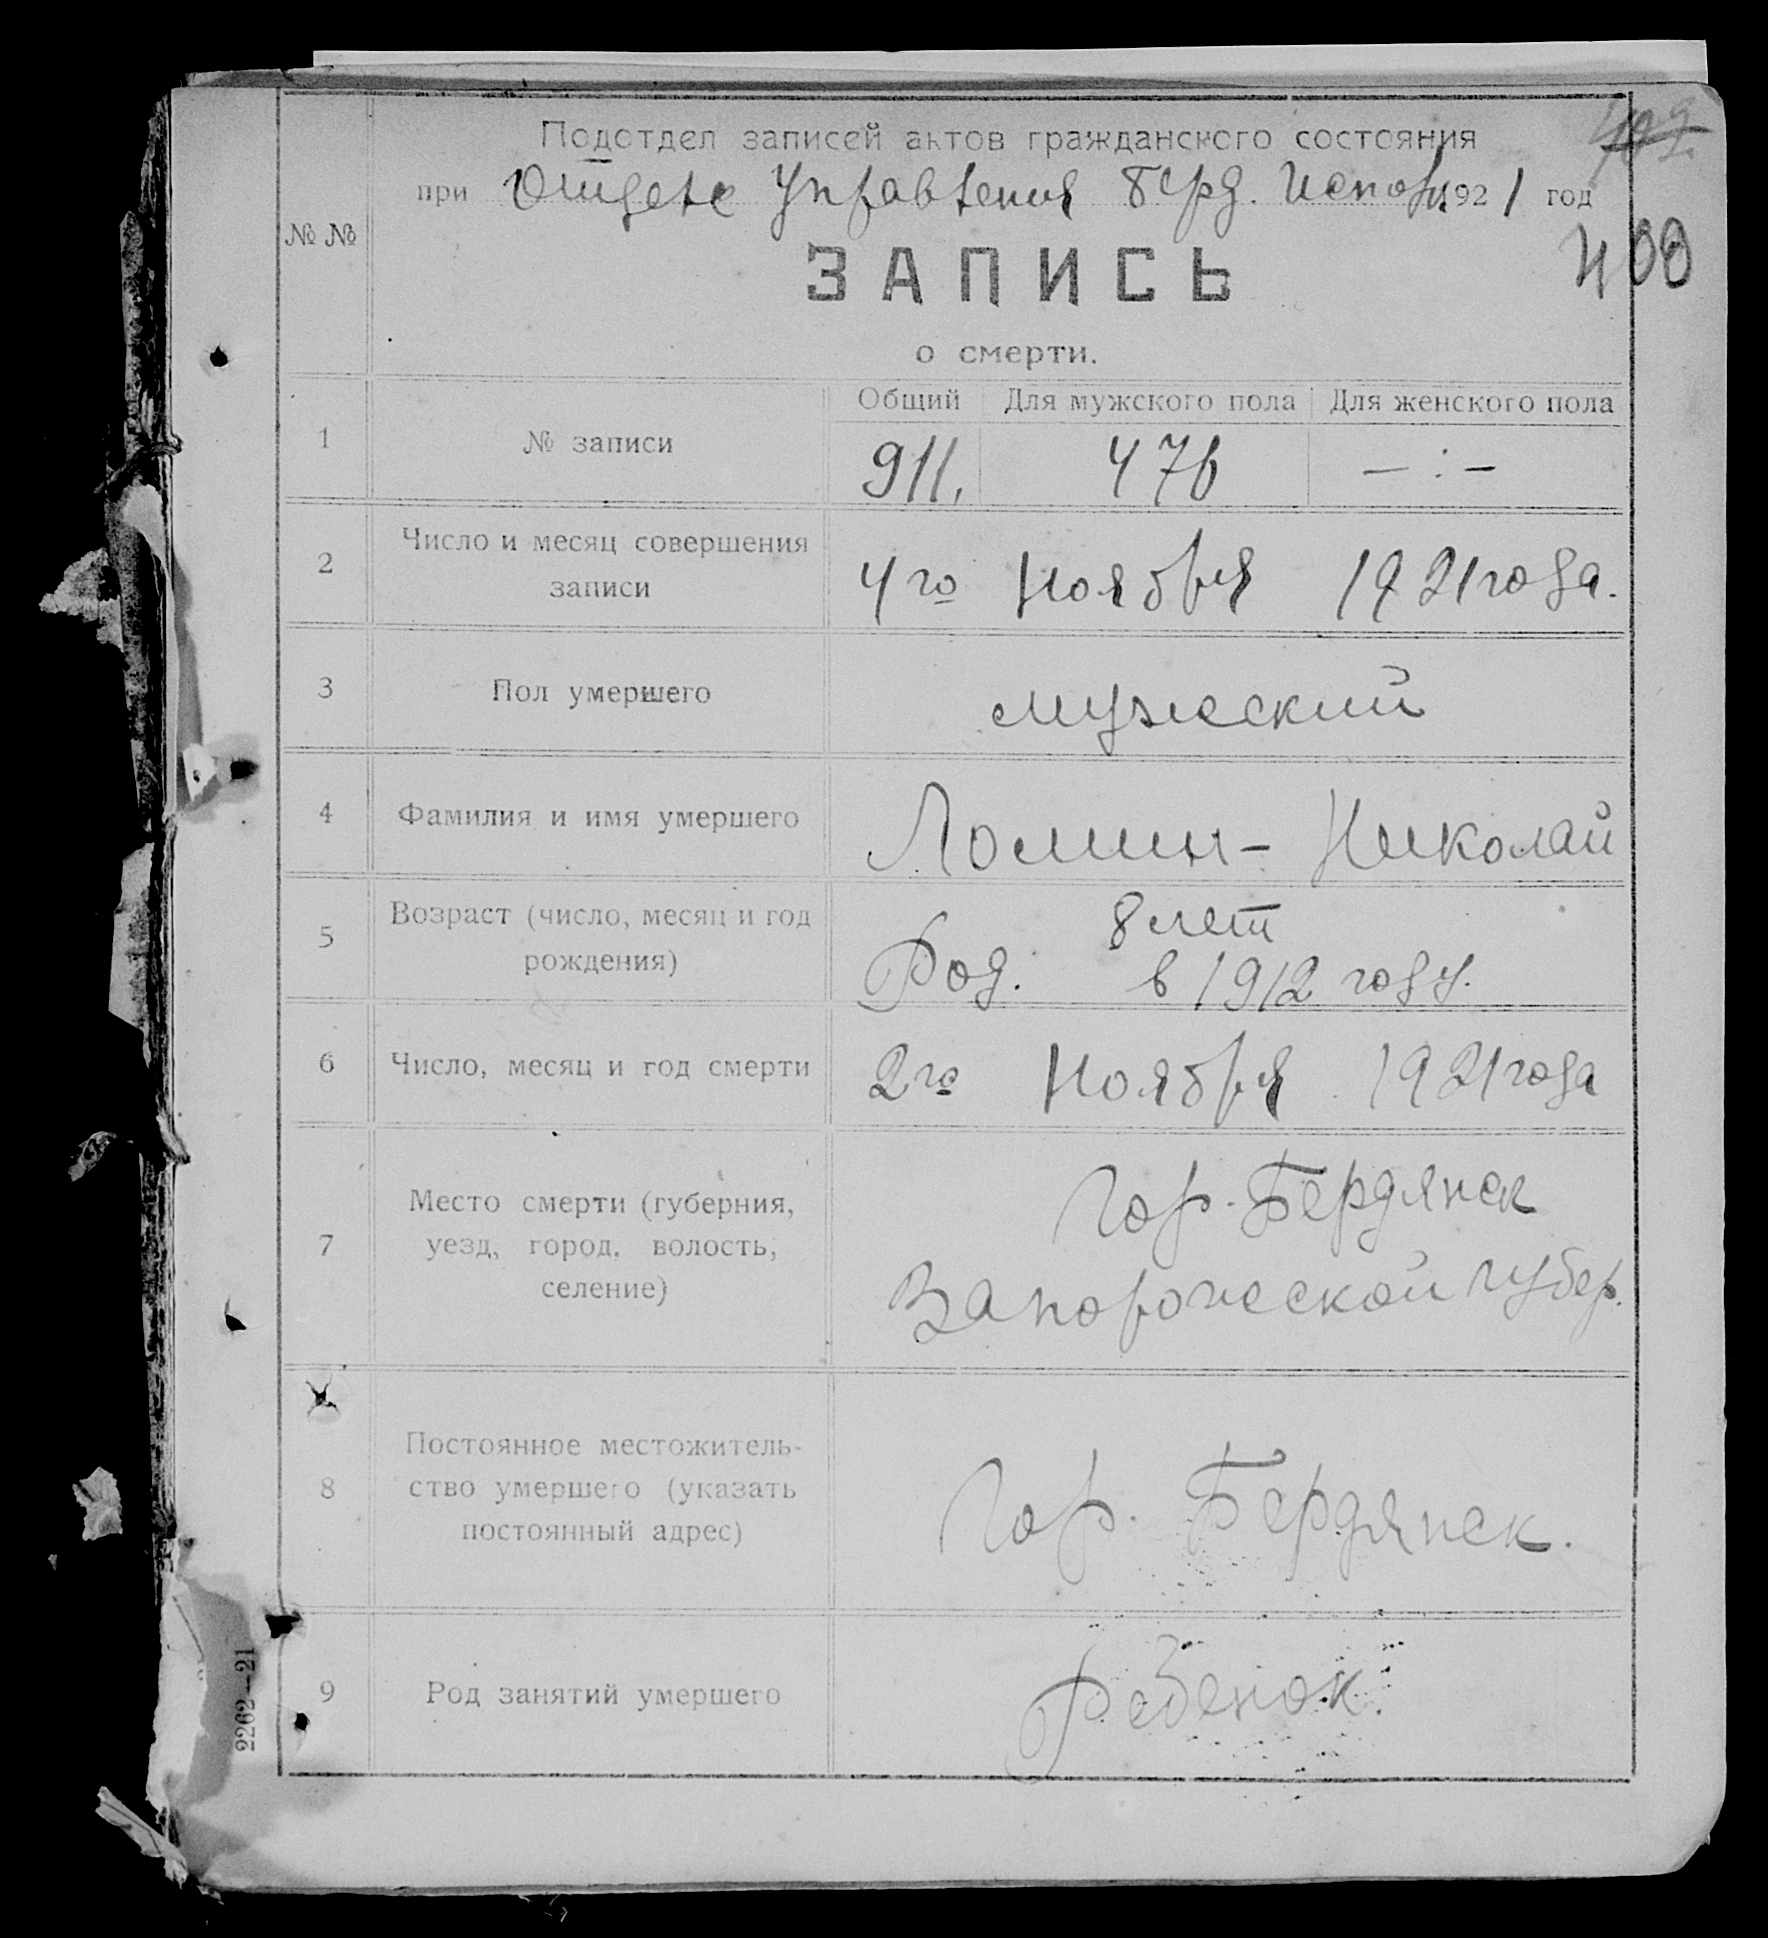 Подотдел записей актов гражданского состояния
при Отделе Управления Берд. 1921 год
400
№ №
ЗАПИСЬ
о смерти.
Общий Для мужского пола Для женского пола
1 № записи 911, 476 — : —
2 Число и месяц совершения
записи
4го Ноября 1921 года.
3 Пол умершего мужеский
4 Фамилия и имя умершего Ломин - Николай
5 Возраст (число, месяц и год
рождения)
8 лет
Род. в 1912 году.
6 Число, месяц и год смерти 2го Ноября 1921 года
7 Место смерти (губерния,
уезд, город, волость,
селение)
Гор. Бердянск
Запорожеской губер.
8 Постоянное местожитель-
ство умершего (указать
постоянный адрес)
Гор. Бердянск.
9 Род занятий умершего Ребенок.
2262—21